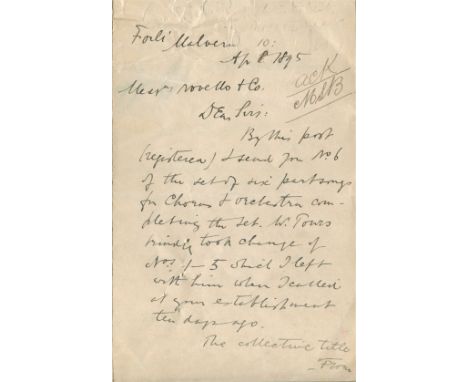 Forli Malvern 10:
Apl 8 1895
ack
MSB
Messrs Novello & Co.
Dear Sirs:
By this post
(registered) I send you No 6
of the set of six partsongs
for Chorus & orchestra com-
pleting the set. Mr Tours
kindly took charge of
Nos. 1–5 which I left
with him when I called
at your establishment
ten days ago.
The collective title
— From